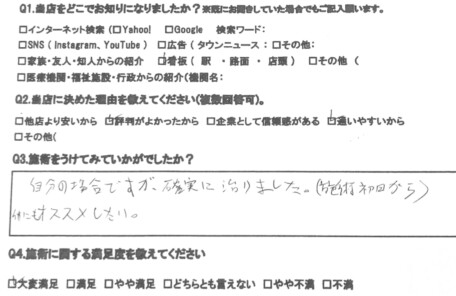 Q1.当店をどこでお知りになりましたか？※既にお聞きしていた場合でもご記入願います。
□インターネット検索（□Yahoo! □Google 検索ワード：
□SNS（Instagram、YouTube） □広告（タウンニュース： □その他：
□家族・友人・知人からの紹介 ☑看板（ 駅 ・ 路面 ・ 店頭 ） □その他（
□医療機関・福祉施設・行政からの紹介（機関名：
Q2.当店に決めた理由を教えてください（複数回答可）。
□他店より安いから ☑評判がよかったから □企業として信頼感がある ☑通いやすいから
□その他（
Q3.施術をうけてみていかがでしたか？
自分の場合ですが、確実に治りました。（施術初回から）
他にもオススメしたい。
Q4.施術に関する満足度を教えてください
☑大変満足 □満足 □やや満足 □どちらとも言えない □やや不満 □不満